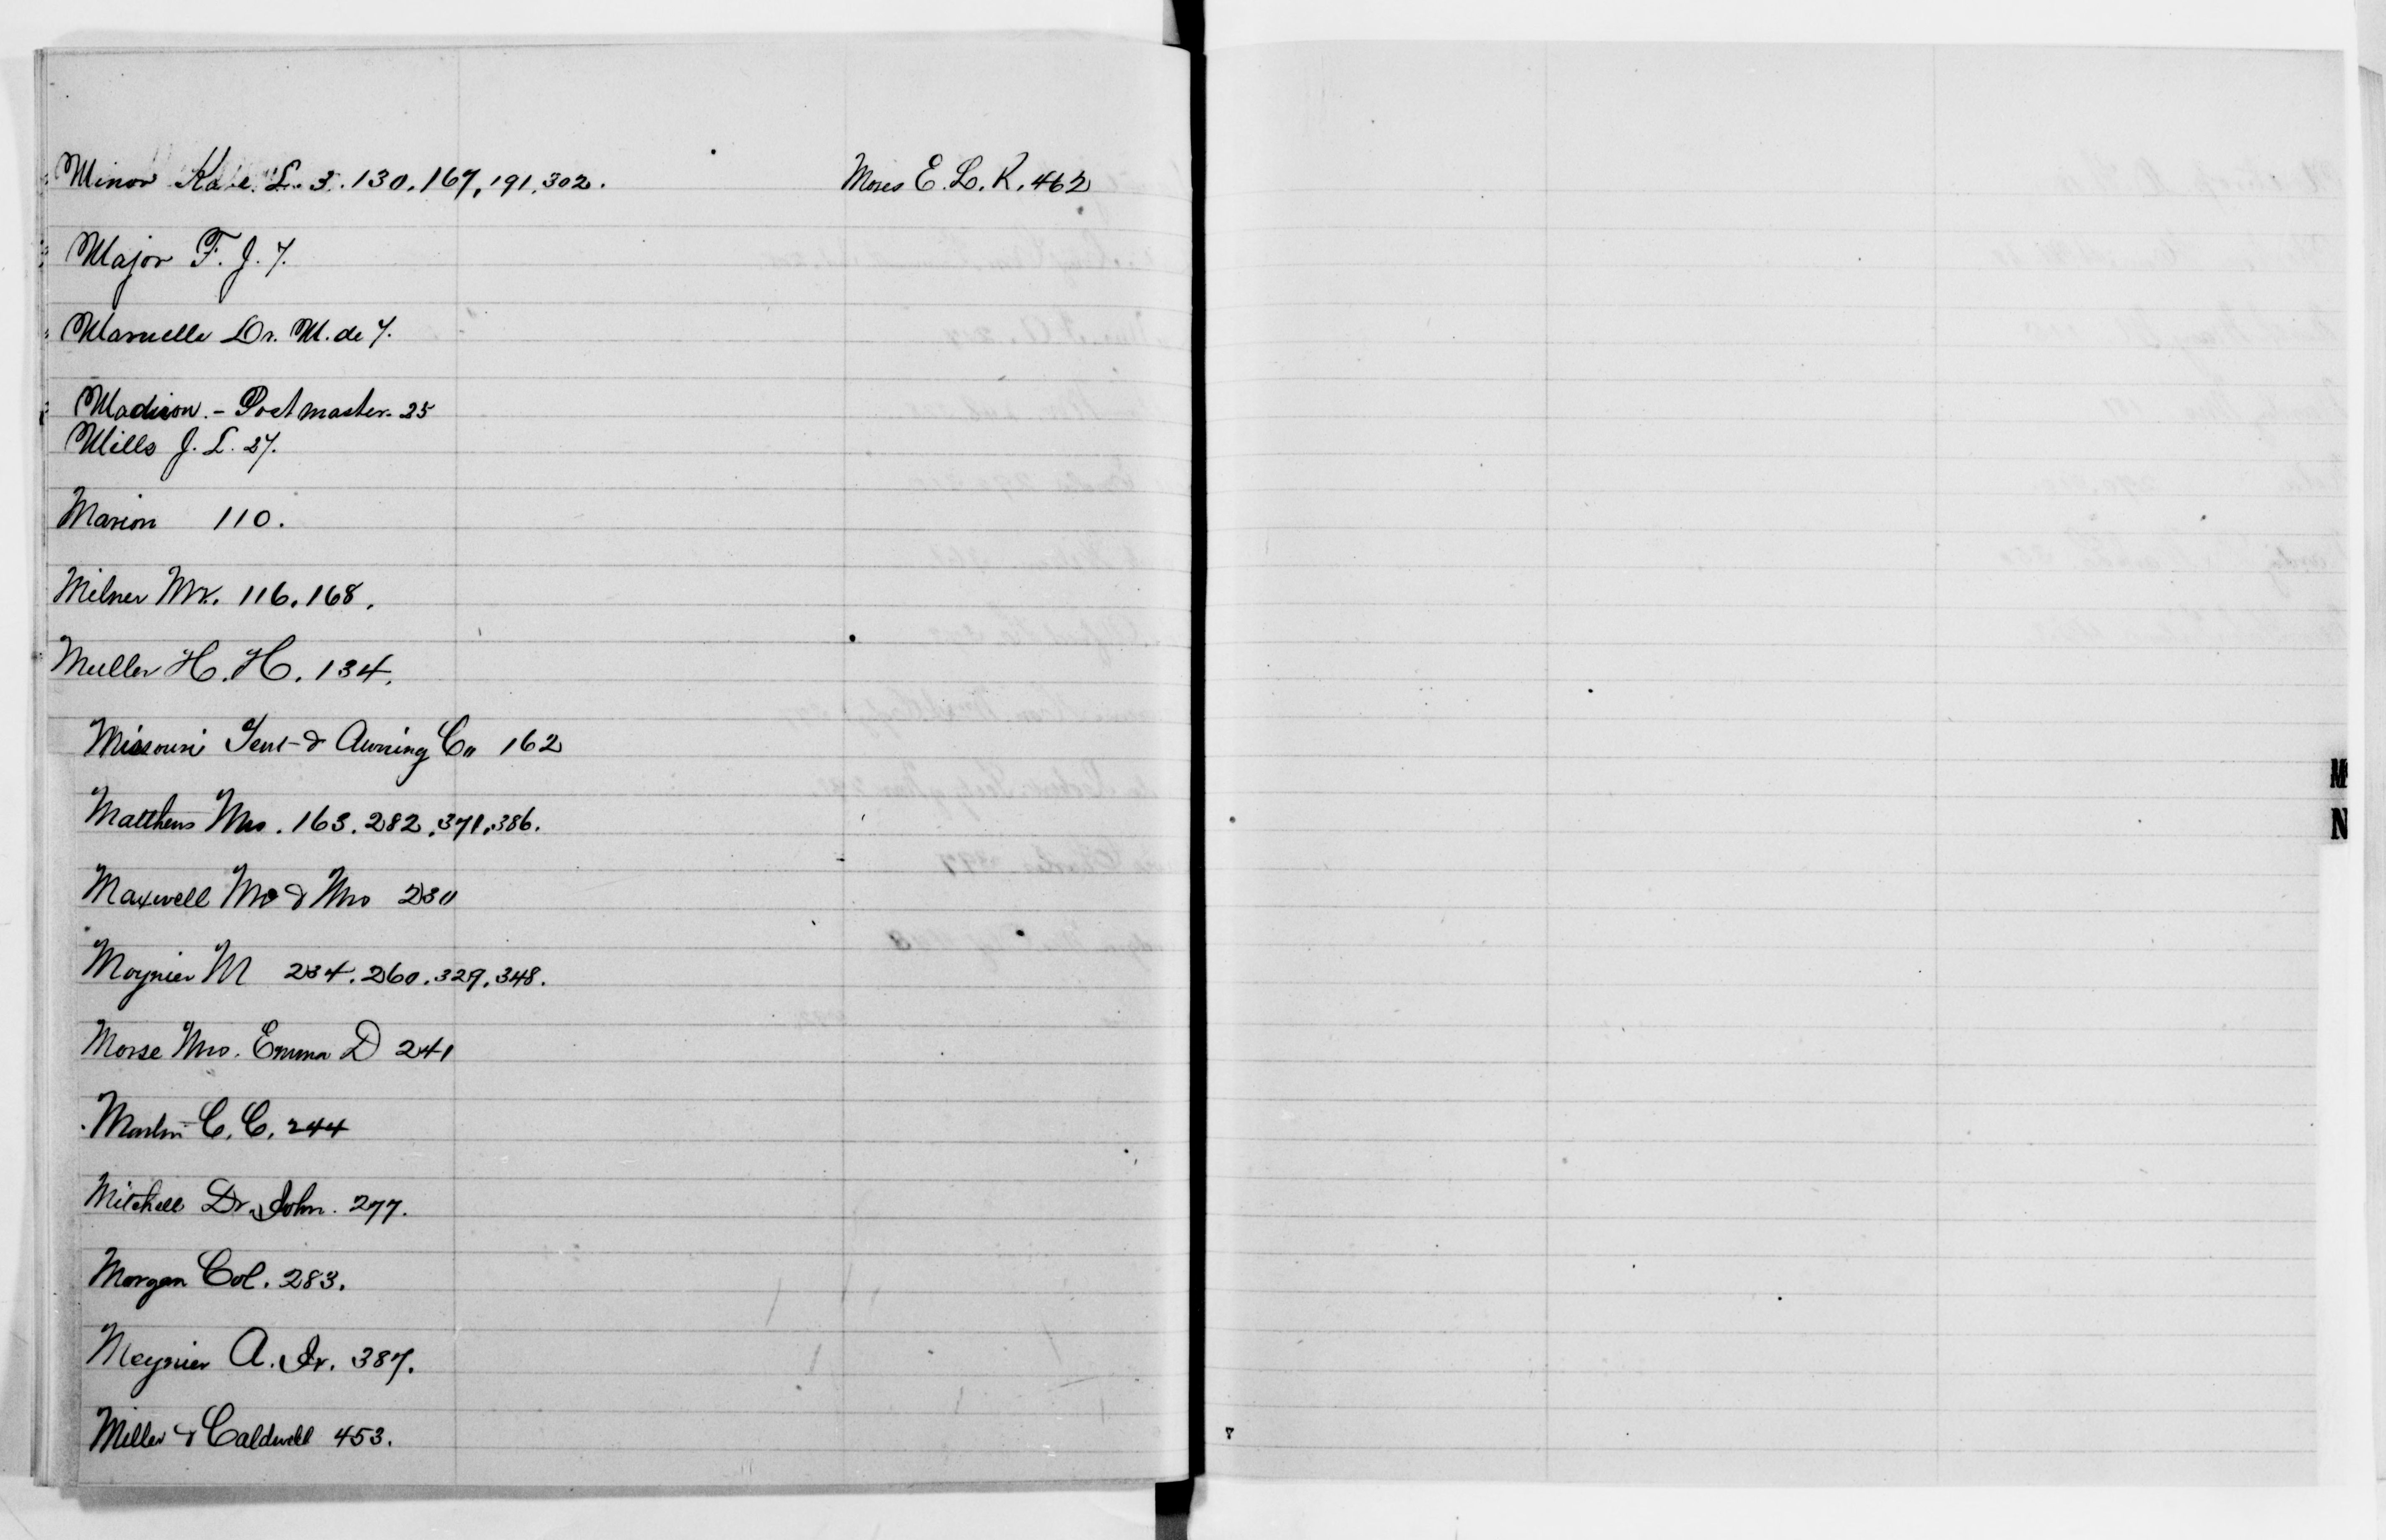 Minor Kate. L. 3. 130. 167, 191. 302.
Major F. J. 7.
Maruelle Dr. M. de 7.
Madison. - Postmaster. 25
Mills J. L. 27.
Marion 110.
Milner Mr. 116. 168.
Muller H. H. 134.
Missouri Tent & Awning Co 162
Matthews Mrs. 163. 282. 371. 386.
Maxwell Mr & Mrs 230
Moynier M 234. 260. 329. 348.
Morse Mrs. Emma D 241
Martin C. C. 244
Mitchell Dr. John. 277.
Morgan Col. 283.
Meynier A. Jr. 387.
Miller & Caldwell 453.
Moses E. L. K. 462
M
N